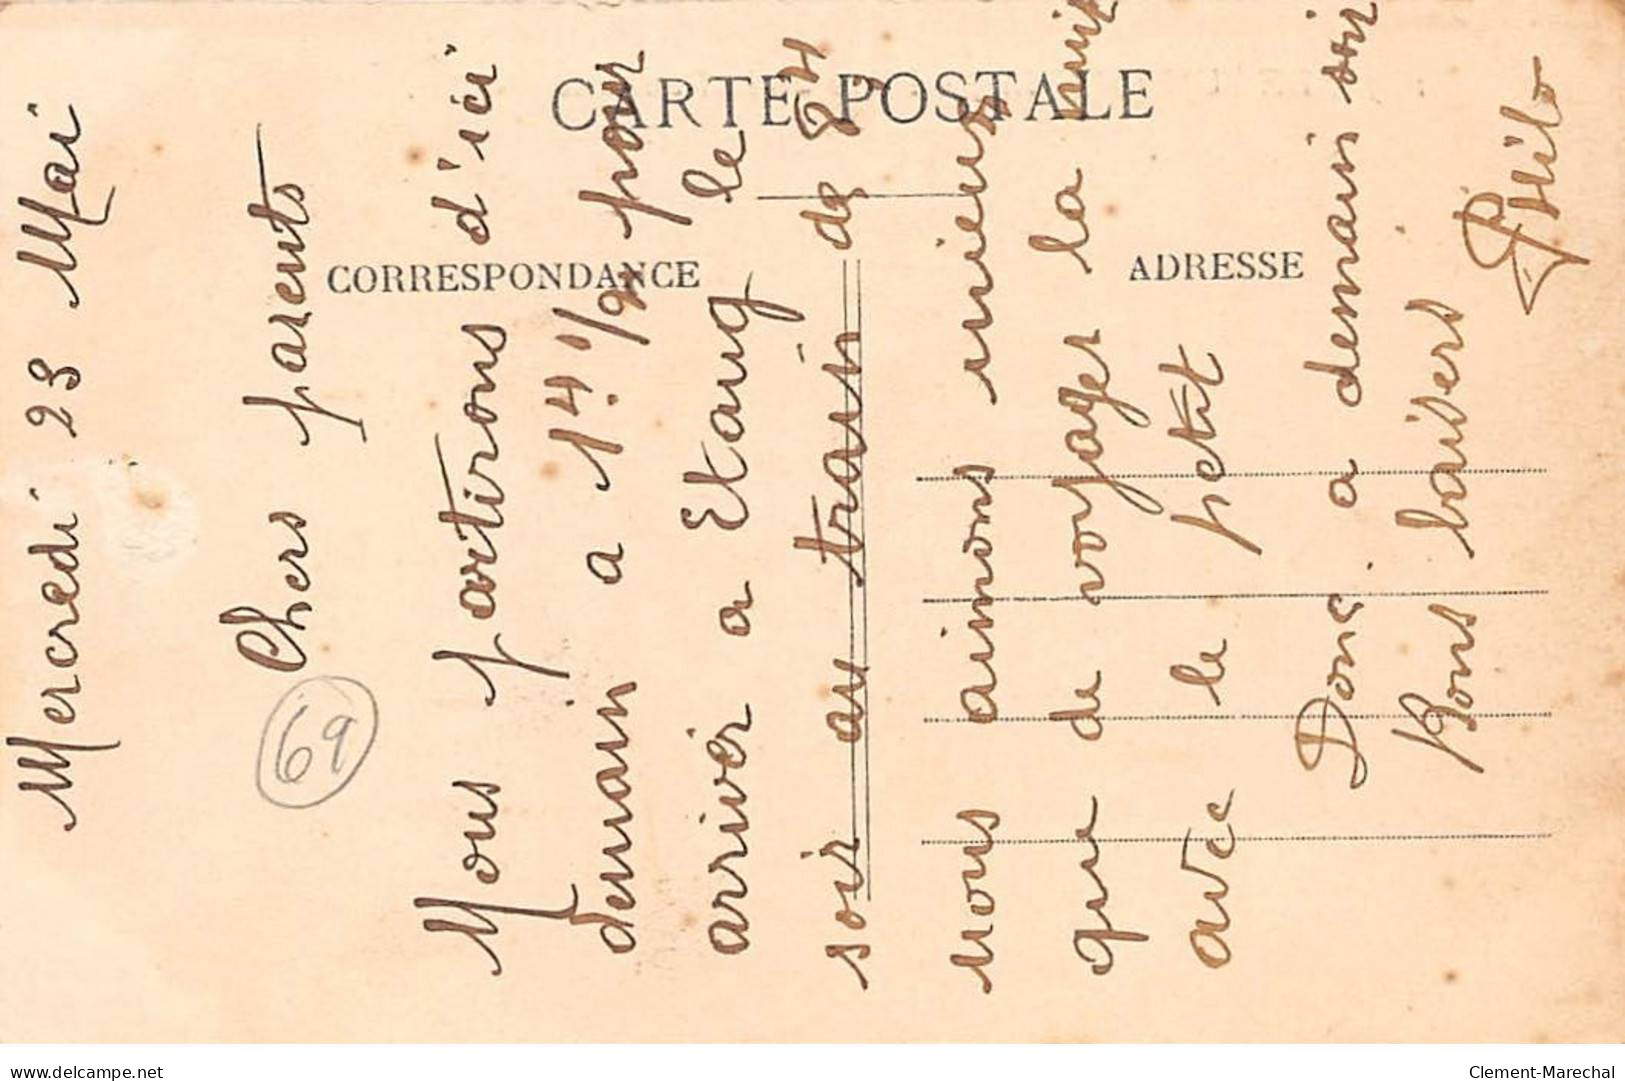 CARTE POSTALE
CORRESPONDANCE
ADRESSE
Mercredi 23 Mai
Chers parents
Nous partirons d'ici
demain a 1.4 1/2 pour
arriver a Etang le
soir au train de 8.4
nous aimons mieux
que de voyager la nuit
avec le petit
Donc a demain soir
Bons baisers
69
delcampe.net
Clement-Marechal